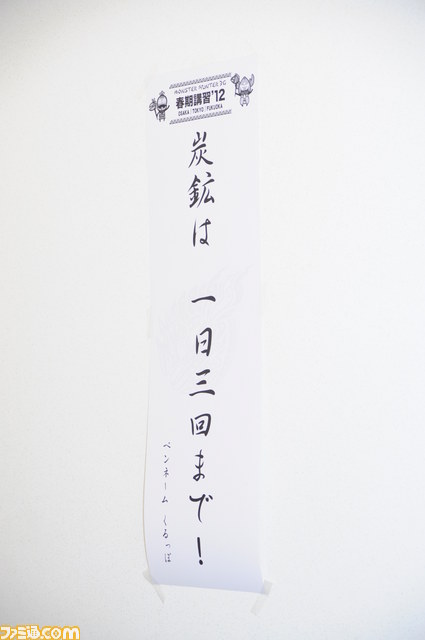 MONSTER HUNTER 3G
春期講習'12
OSAKA TOKYO FUKUOKA
炭鉱は 一日三回まで!
ペンネーム くるっぽ
ファミ通.com